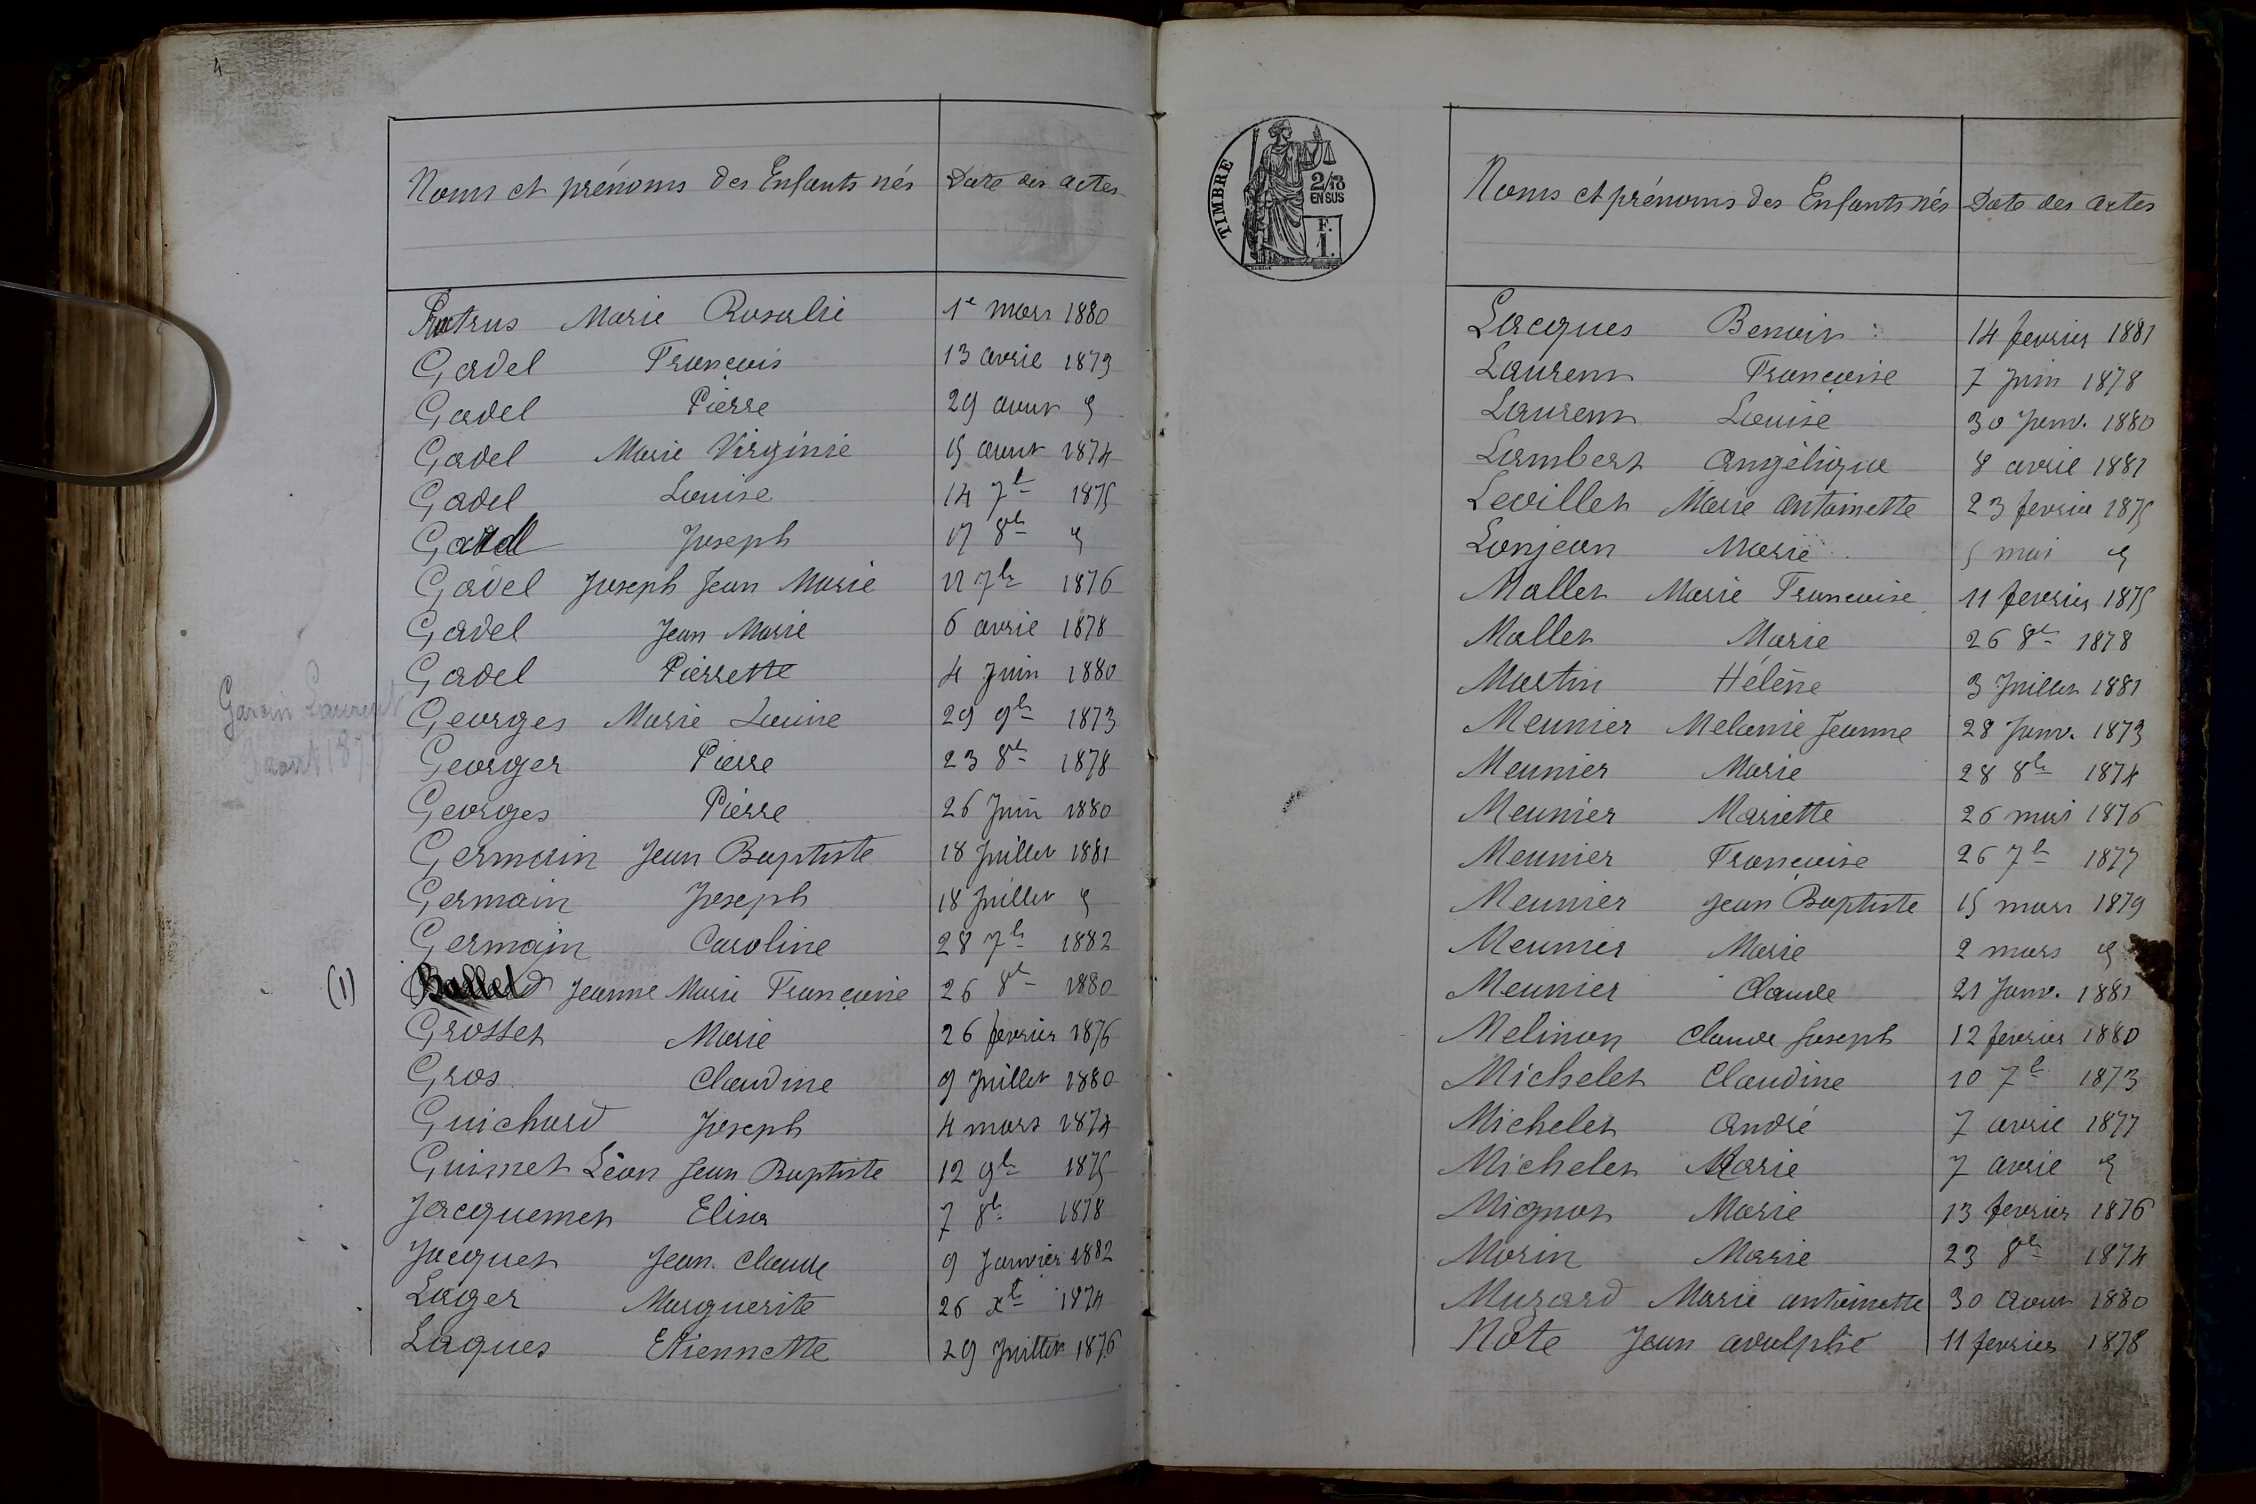 4
Noms et prénoms des Enfants nés Date des actes
Marie Rosalie 1e mars 1880
Gadel François 13 avril 1873
Gadel Pierre 29 aout
Gadel Marie Virginie 15 aout 1874
Gadel Louise 14 7b 1875
Gadel Joseph 17 8b
Gadel Joseph Jean Marie 22 7b 1876
Gadel Jean Marie 6 avril 1878
Gadel Pierrette 4 Juin 1880
Garcin Laurent
aout 187
Georges Marie Louise 29 9b 1873
Georges Pierre 23 8b 1878
Georges Pierre 26 Juin 1880
Germain Jean Baptiste 18 Juillet 1881
Germain Joseph 18 Juillet
Germain Caroline 28 7b 1882
(1) Ballet Jeanne Marie Françoise 26 8b 1880
Grosset Marie 26 fevrier 1876
Gros Claudine 9 Juillet 1880
Guichard Joseph 4 mars 1874
Guimet Léon Jean Baptiste 12 9b 1875
Jacquemet Elisa 7 8b 1878
Jacquet Jean Claude 9 Janvier 1882
Lager Marguerite 26 xb 1874
Laques Etiennette 29 Juillet 1876
TIMBRE
2/10
EN SUS
F.
1.
Noms et prénoms des Enfants nés Date des actes
Lacques Benoit 14 fevrier 1881
Laurent Françoise 7 Juin 1878
Laurent Louise 30 Janv. 1880
Lambert Angélique 8 avril 1881
Levillet Marie Antoinette 23 fevrier 1875
Lonjean Marie 5 mai
Mallet Marie Françoise 11 fevrier 1875
Mallet Marie 26 8b 1878
Martin Hélène 3 Juillet 1881
Meunier Melanie Jeanne 28 Janv. 1873
Meunier Marie 28 8b 1874
Meunier Mariette 26 mai 1876
Meunier Françoise 26 7b 1877
Meunier Jean Baptiste 15 mars 1879
Meunier Marie 2 mars
Meunier Claude 21 Janv. 1881
Melinon Claude Joseph 12 fevrier 1880
Michelet Claudine 10 7b 1873
Michelet André 7 avril 1877
Michelet Marie 7 avril
Mignot Marie 13 fevrier 1876
Morin Marie 23 8b 1874
Muzard Marie antoinette 30 Aout 1880
Note Jean adolphe 11 fevrier 1878